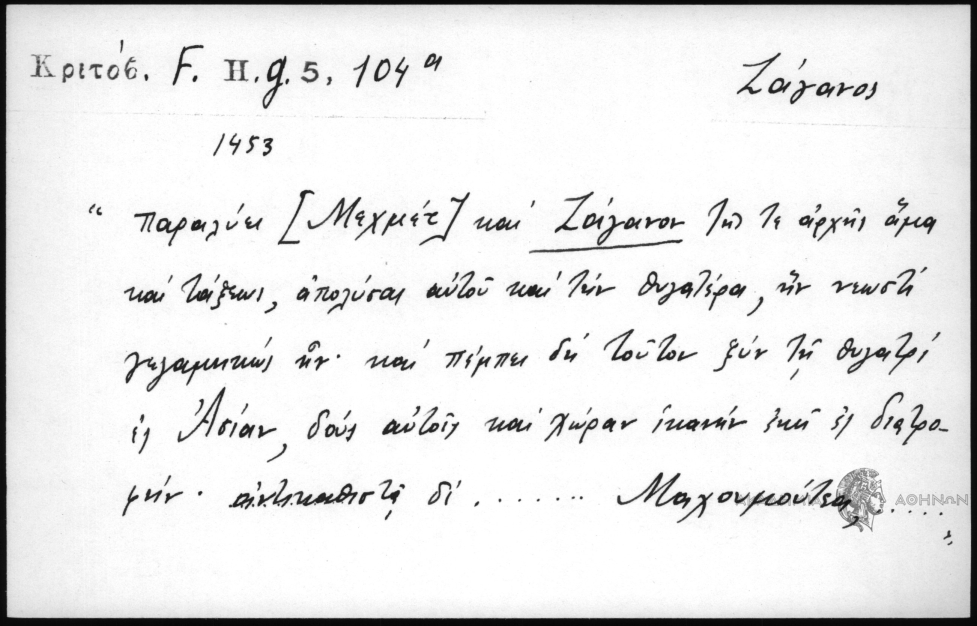 Κριτόβ. F. H. g. 5, 104ᵃ
Ζάγανος
1453
“ παραλύει [Μεχμέτ] καὶ Ζάγανον τῆς τε ἀρχῆς ἅμα
καὶ τάξεως, ἀπολύσας αὐτοῦ καὶ τὴν θυγατέρα, ἣν νεωστὶ
γεγαμηκὼς ἦν· καὶ πέμπει δὴ τοῦτον ξὺν τῇ θυγατρὶ
ἐς Ἀσίαν, δοὺς αὐτοῖς καὶ χώραν ἱκανὴν ἐκεῖ ἐς διατρο-
φήν· ἀντικαθιστᾷ δὲ ....... Μαχουμούτεα, ....
ΑΘΗΝΩΝ